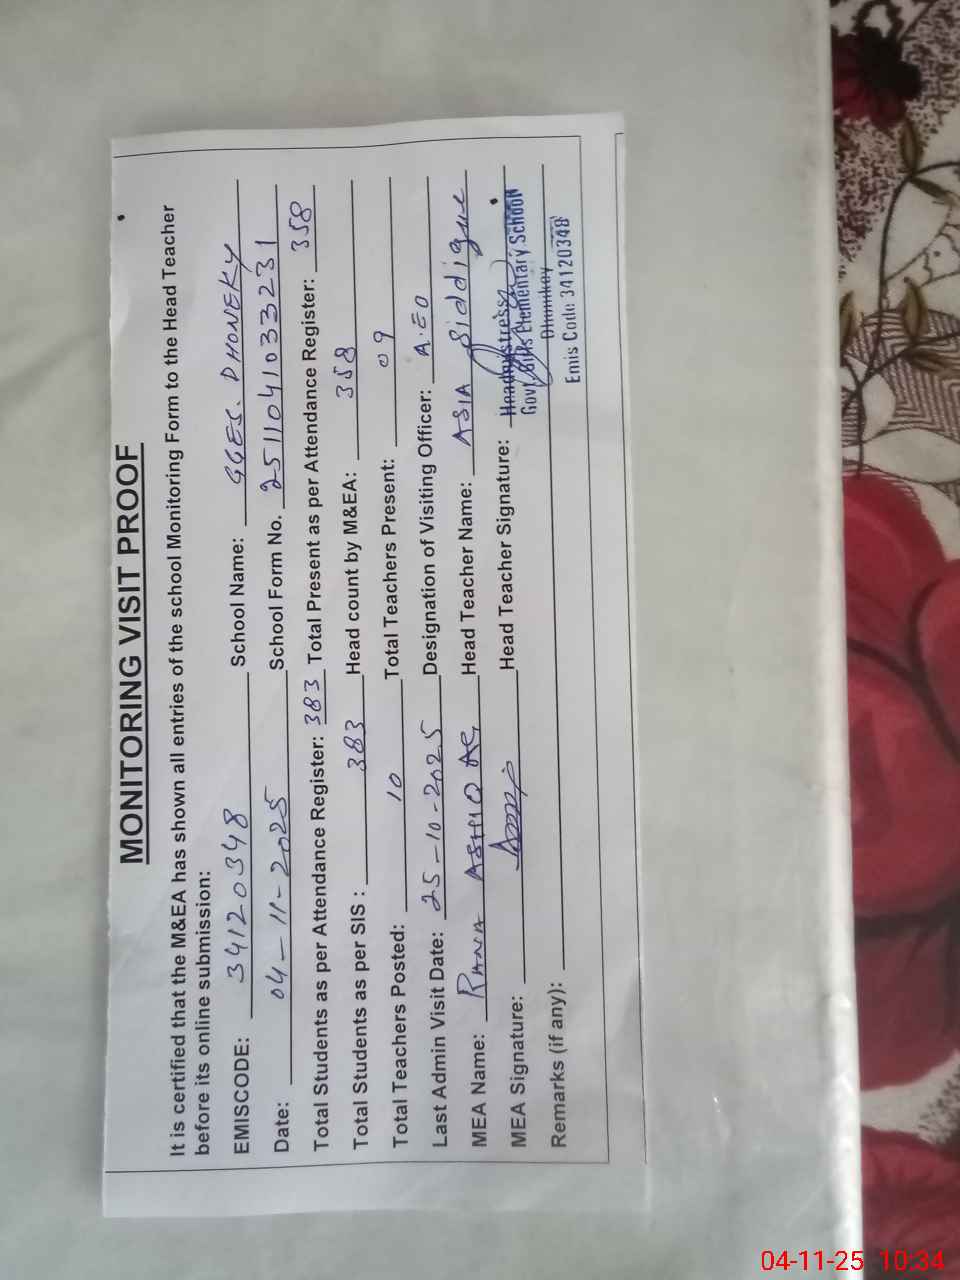 MONITORING VISIT PROOF
It is certified that the M&EA has shown all entries of the school Monitoring Form to the Head Teacher
before its online submission:
EMISCODE: 34120348 School Name: GGES. DHONEKY
Date: 04-11-2025 School Form No. 2511041033231
Total Students as per Attendance Register: 383 Total Present as per Attendance Register: 358
Total Students as per SIS : 383 Head count by M&EA: 358
Total Teachers Posted: 10 Total Teachers Present: 09
Last Admin Visit Date: 25-10-2025 Designation of Visiting Officer: A.EO
MEA Name: RANA ASHIQ Head Teacher Name: ASIA Siddique
MEA Signature: Head Teacher Signature:
Headmistress
Govt. Girls Elementary School
Remarks (if any):
Dhunikay
Emis Code 34120348
04-11-25 10:34